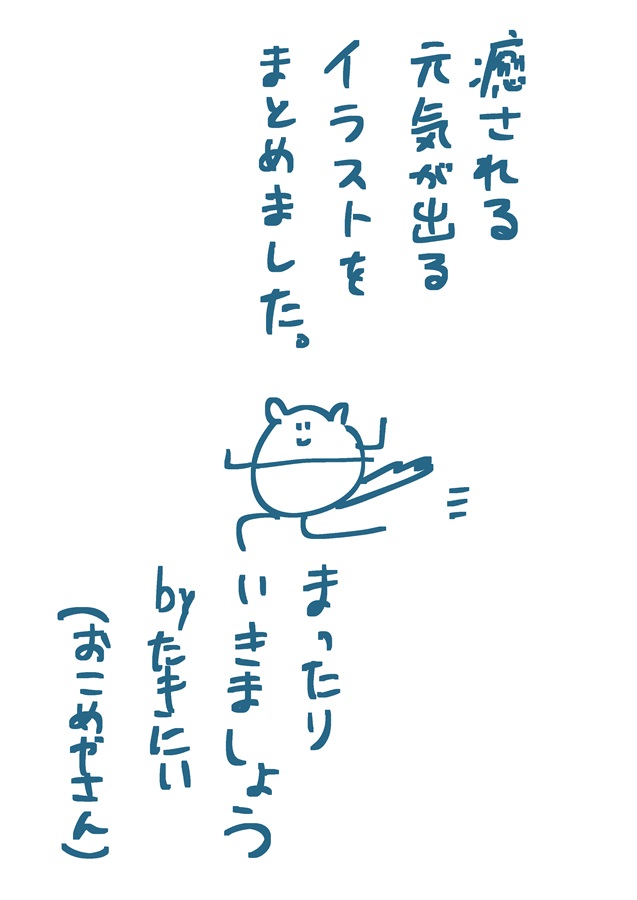 癒される
元気が出る
イラストを
まとめました。
まったり
いきましょう
byたきにい
(おこめやさん)